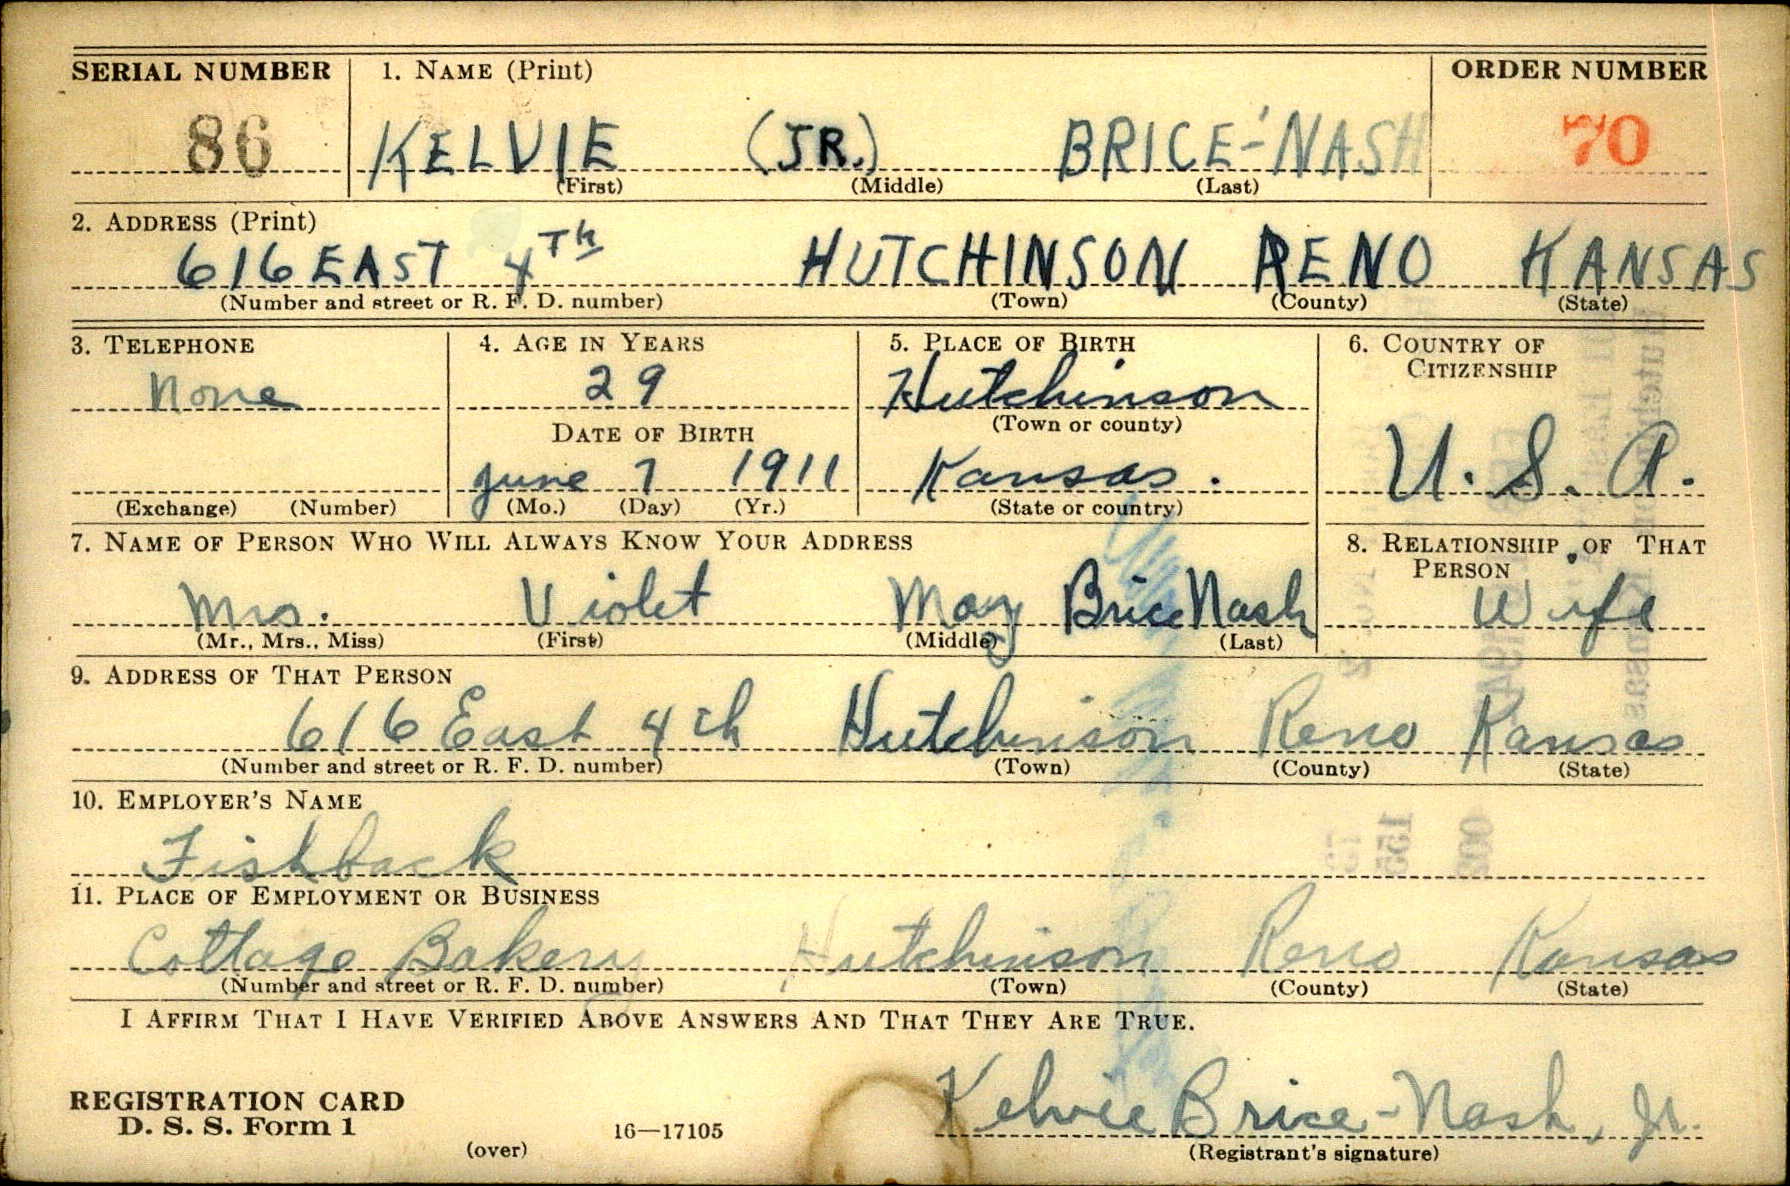 SERIAL NUMBER 1. NAME (Print) ORDER NUMBER
86 KELVIE (JR.) BRICE-NASH 70
(First) (Middle) (Last)
2. ADDRESS (Print)
616 EAST 4Th HUTCHINSON RENO KANSAS
(Number and street or R. F. D. number) (Town) (County) (State)
3. TELEPHONE 4. AGE IN YEARS 5. PLACE OF BIRTH 6. COUNTRY OF
CITIZENSHIP
None 29 Hutchinson
(Town or county)
DATE OF BIRTH
June 7 1911 Kansas. U. S. A.
(Exchange) (Number) (Mo.) (Day) (Yr.) (State or country)
7. NAME OF PERSON WHO WILL ALWAYS KNOW YOUR ADDRESS 8. RELATIONSHIP OF THAT
PERSON
Mrs. Violet May Brice Nash Wife
(Mr., Mrs., Miss) (First) (Middle) (Last)
9. ADDRESS OF THAT PERSON
616 East 4th Hutchinson Reno Kansas
(Number and street or R. F. D. number) (Town) (County) (State)
10. EMPLOYER'S NAME
Fishback
11. PLACE OF EMPLOYMENT OR BUSINESS
Cottage Bakery Hutchinson Reno Kansas
(Number and street or R. F. D. number) (Town) (County) (State)
I AFFIRM THAT I HAVE VERIFIED ABOVE ANSWERS AND THAT THEY ARE TRUE.
Kelvie Brice-Nash, Jr.
REGISTRATION CARD
D. S. S. Form 1 16—17105
(over) (Registrant's signature)